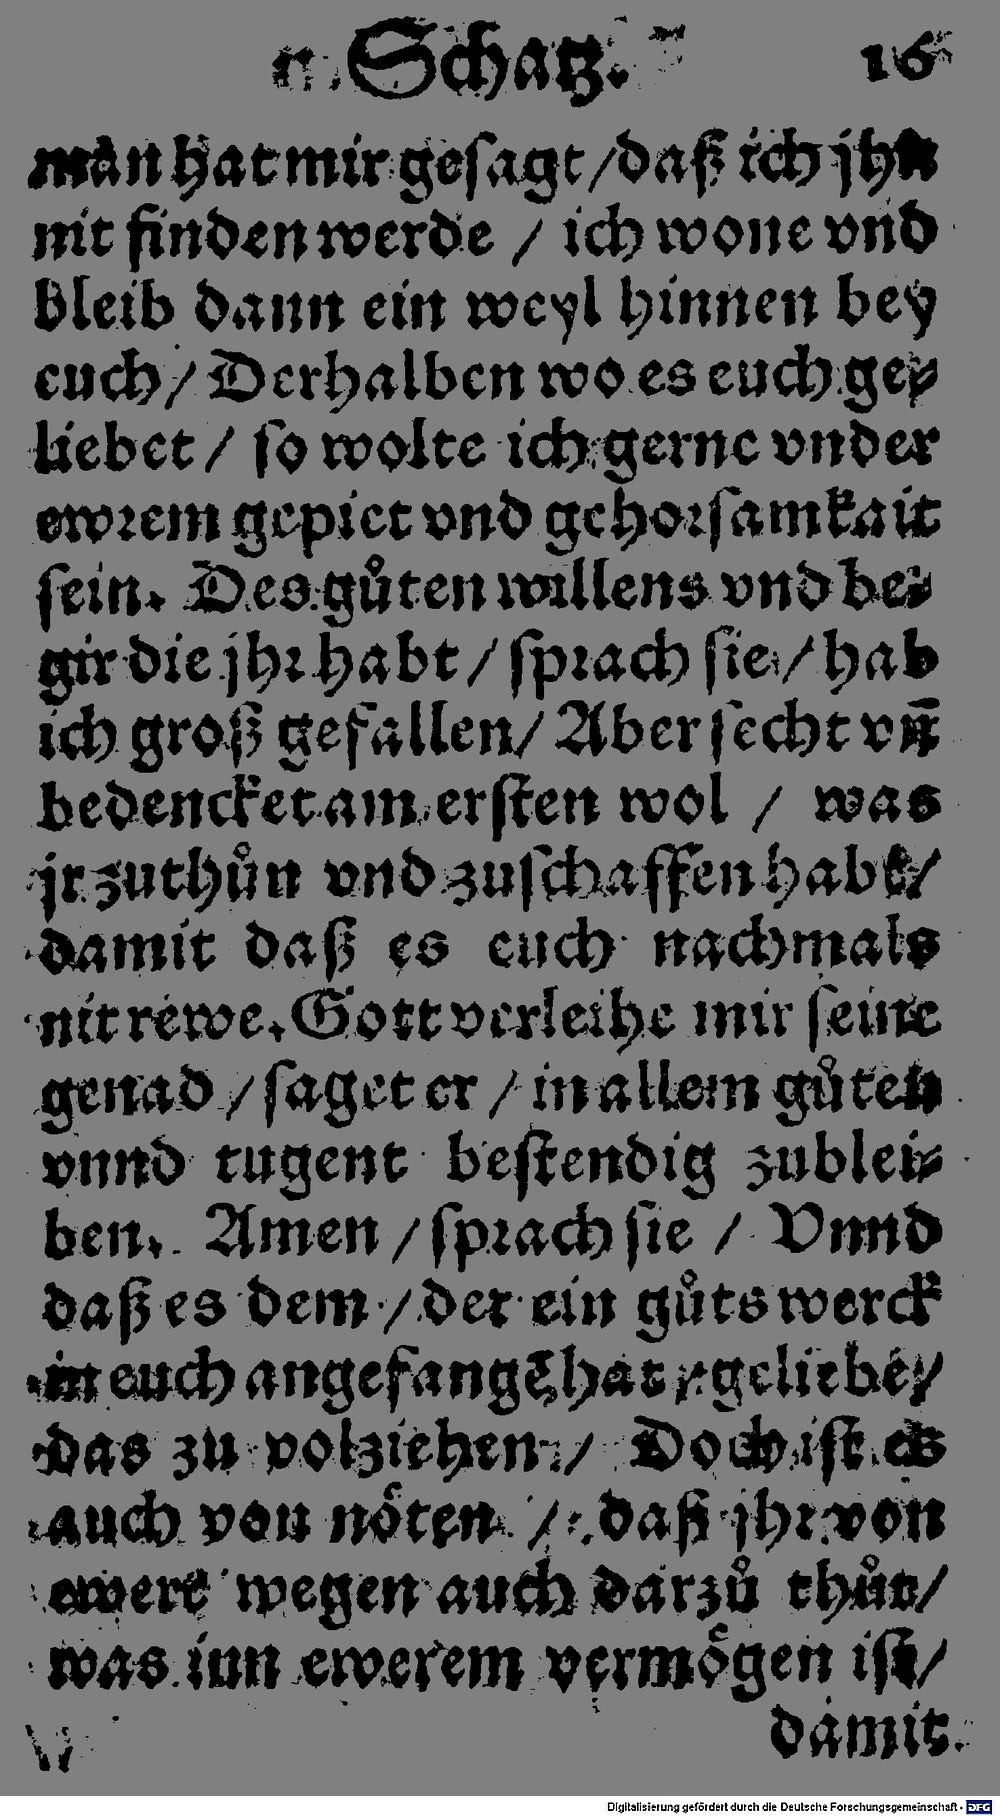 Schatz. 16
man hat mir gesagt / daß ich jhn
nit finden werde / ich wone vnd
bleib dann ein weyl hinnen bey
euch / Derhalben wo es euch ge⸗
liebet / so wolte ich gerne vnder
ewrem gepiet vnd gehorsamkait
sein. Des gůten willens vnd be⸗
gir die jhr habt / sprach sie / hab
ich groß gefallen / Aber secht vn̄
bedencket am ersten wol / was
jr zuthůn vnd zuschaffen habt /
damit daß es euch nachmals
nit rewe. Gott verleihe mir seine
genad / saget er / in allem gůten
vnnd tugent bestendig zublei⸗
ben. Amen / sprach sie / Vnnd
daß es dem / der ein gůts werck
in euch angefangē hat / geliebe /
das zu volziehen / Doch ist es
auch von nöten / daß jhr von
ewert wegen auch darzů thůt /
was inn ewerem vermögen ist /
damit
Digitalisierung gefördert durch die Deutsche Forschungsgemeinschaft - DFG